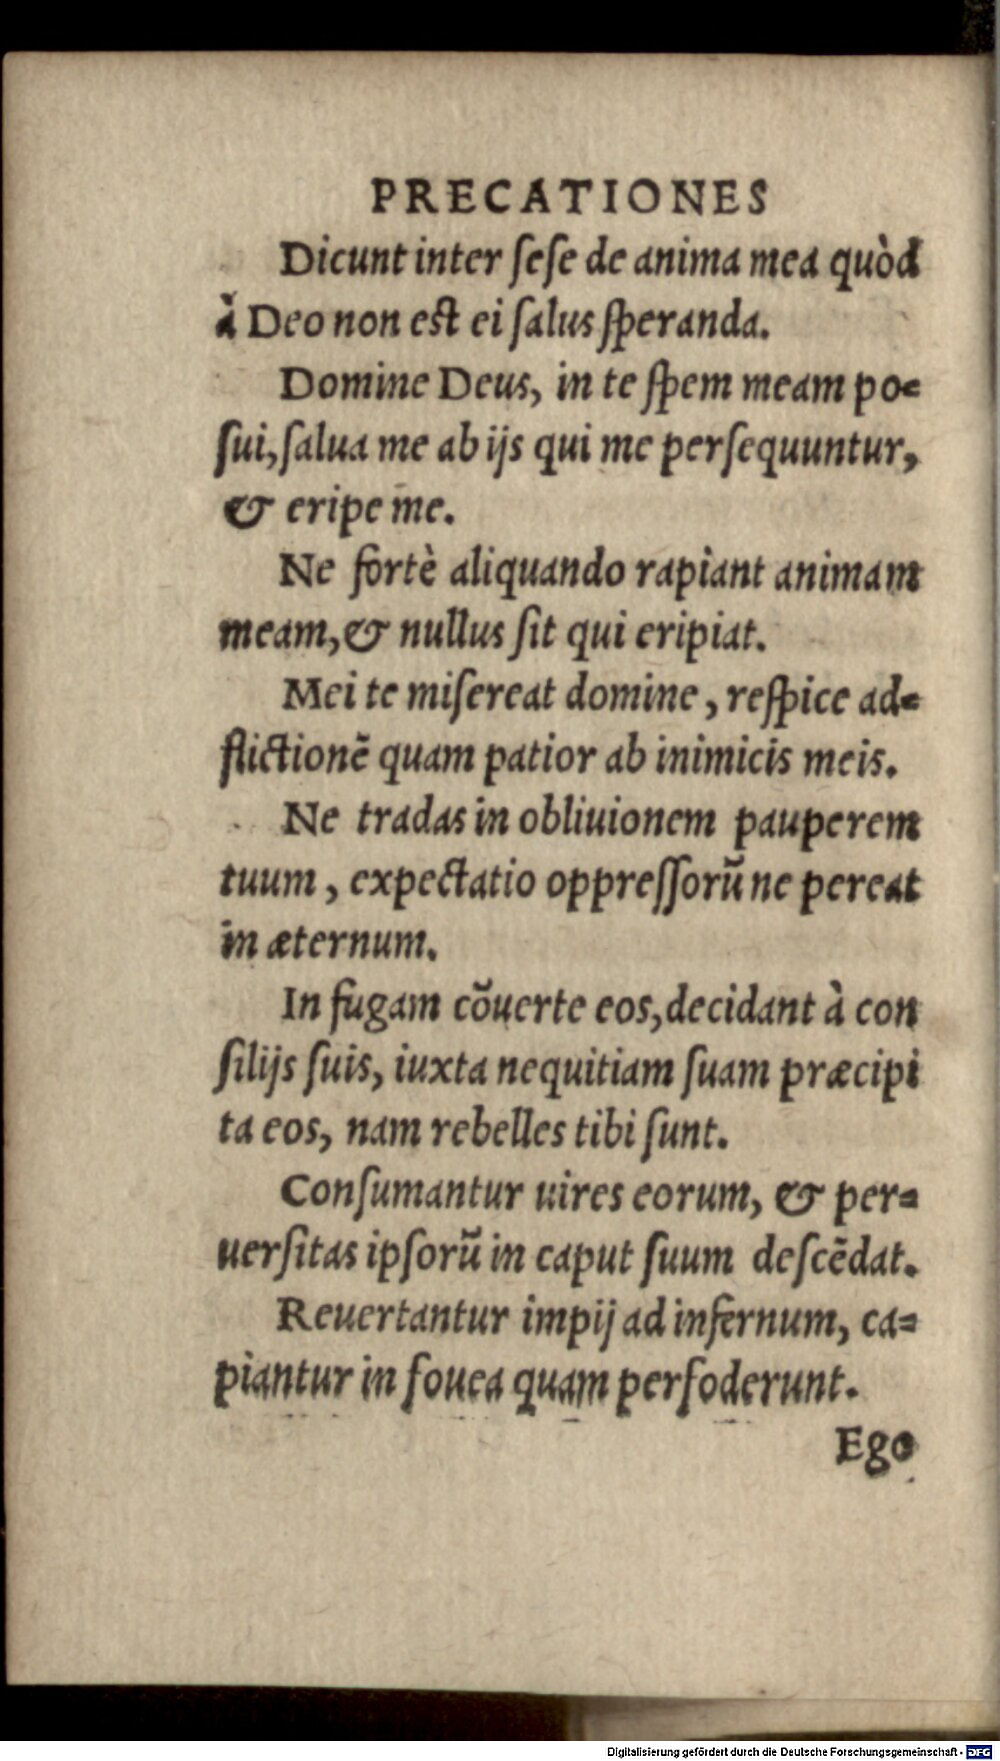 PRECATIONES
Dicunt inter ſeſe de anima mea quòd
à Deo non est ei ſalus ſperanda.
Domine Deus, in te ſpem meam po-
ſui, ſalua me ab ijs qui me perſequuntur,
& eripe me.
Ne fortè aliquando rapiant animam
meam, & nullus ſit qui eripiat.
Mei te miſereat domine, reſpice ad-
flictionẽ quam patior ab inimicis meis.
Ne tradas in obliuionem pauperem
tuum, expectatio oppreſſorũ ne pereat
in æternum.
In fugam cõuerte eos, decidant à con
ſilijs ſuis, iuxta nequitiam ſuam præcipi
ta eos, nam rebelles tibi ſunt.
Conſumantur uires eorum, & per-
uerſitas ipſorũ in caput ſuum deſcẽdat.
Reuertantur impij ad infernum, ca-
piantur in fouea quam perfoderunt.
Ego
Digitalisierung gefördert durch die Deutsche Forschungsgemeinschaft - DFG